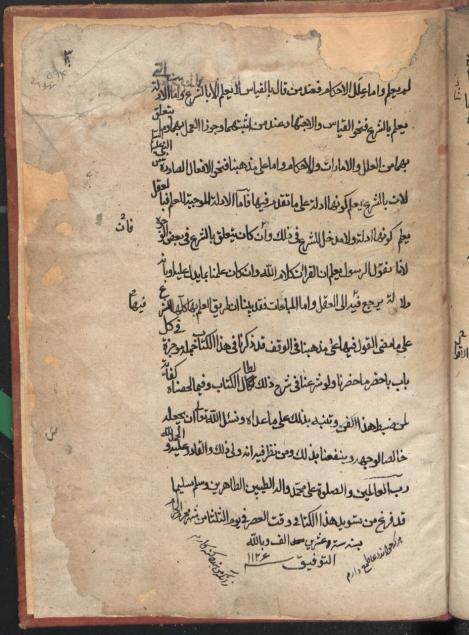 لم يعلم واما علل الاحكام فعند من قال بالقياس لا يعلم الا بالشرع واما الادلة
يعلم بالشرع فنحو القياس والاجتهاد عند من اثبتهما وجوز العمل بهما وما يتعلق
بهما من العلل والامارات والاحكام واما على مذهبنا فنحو الافعال الصادرة
لان بالشرع يعلم كونها ادلة على ما تقدم فيها فاما الادلة الموجبة للعلم فبالعقل
يعلم كونها ادلة ولا مدخل للشرع في ذلك وان كان يتعلق بالشرع في بعض
لانا بقول الرسول يعلم ان القران كلام الله وان كان علمنا بما يدل عليه
دلالة يرجع فيه الى العقل واما المباحات فقد بينا ان طريق العلم بها كلها الشرع
على ما مضى القول فيها على مذهبنا في الوقف قد ذكرنا في هذا الكتاب جملة موجزة في كل
باب باخصر ما حضرنا ولو شرعنا في شرح ذلك لطال الكتاب وفيما لخصناه كفاية
لمن ضبط هذا الفن وتنبه بذلك على ما عداه ونسئل الله تعالى ان يجعله
خالصا لوجهه وينفعنا بذلك ومن نظر فيه انه ولي ذلك والقادر عليه والحمد لله
رب العالمين والصلوة على محمد واله الطيبين الطاهرين وسلم تسليما
قد فرغ من تسويد هذا الكتاب في وقت العصر في يوم الثلثا من شهر محرم الحرام
بسنة ستة وعشرين مائة الف وبالله
التوفيق ١١٢٦
فان
فيها